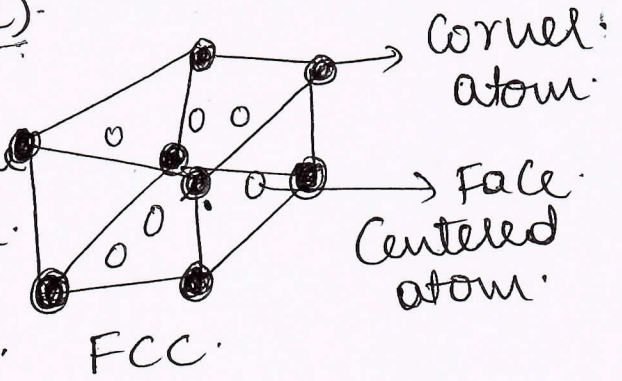 Corner
atom.
Face
Centered
atom.
FCC.